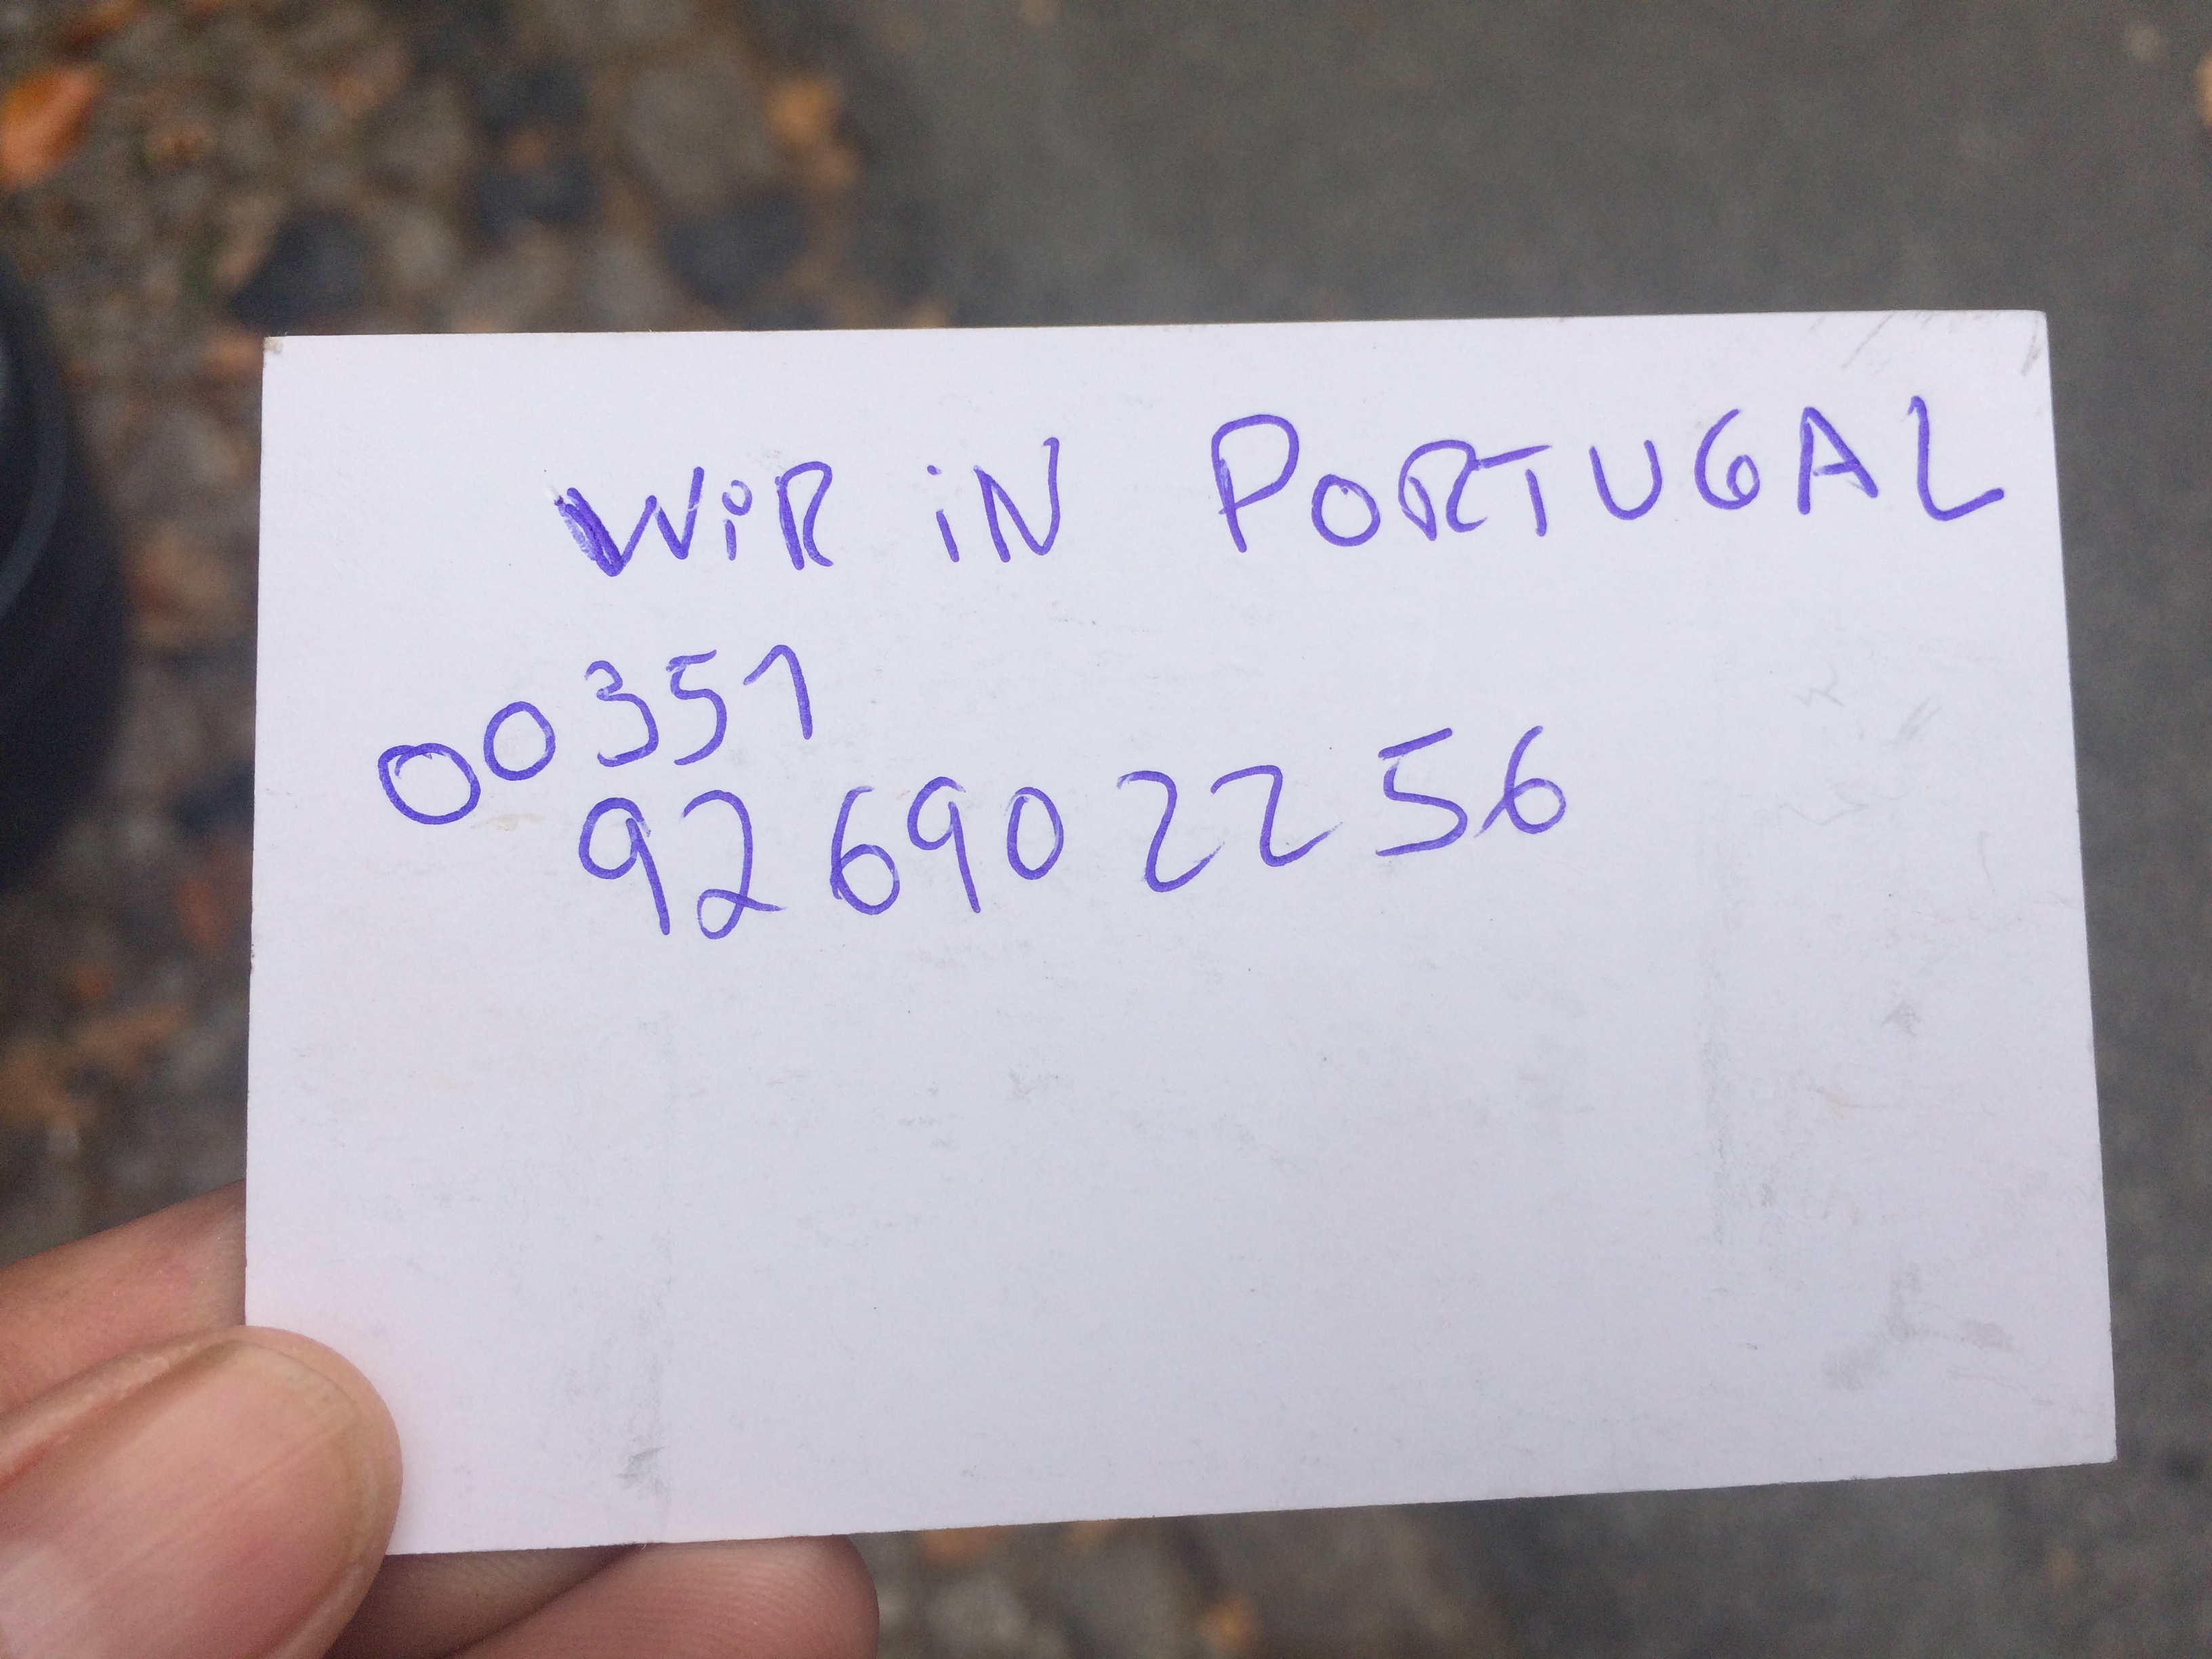 WiR iN PORTUGAL
00351
926902256